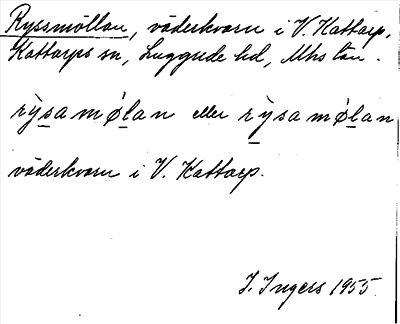 Ryssmöllan, väderkvarn i V. Kattarp,
Kattarps sn, Luggude hd, Mhs län.
rỳsamǿlan eller rỳsamǿlan
väderkvarn i V. Kattarp.
I. Ingers 1955